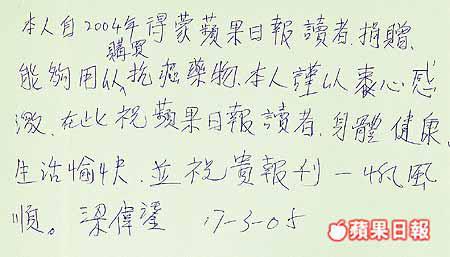 本人自2004年得蒙蘋果日報讀者.捐贈.
購買
能夠用以抗癌藥物.本人謹以衷心感
激.在此祝蘋果日報讀者.身體健康.
生活愉快.並祝貴報刊一帆風
順。梁偉 17-3-05
蘋果日報